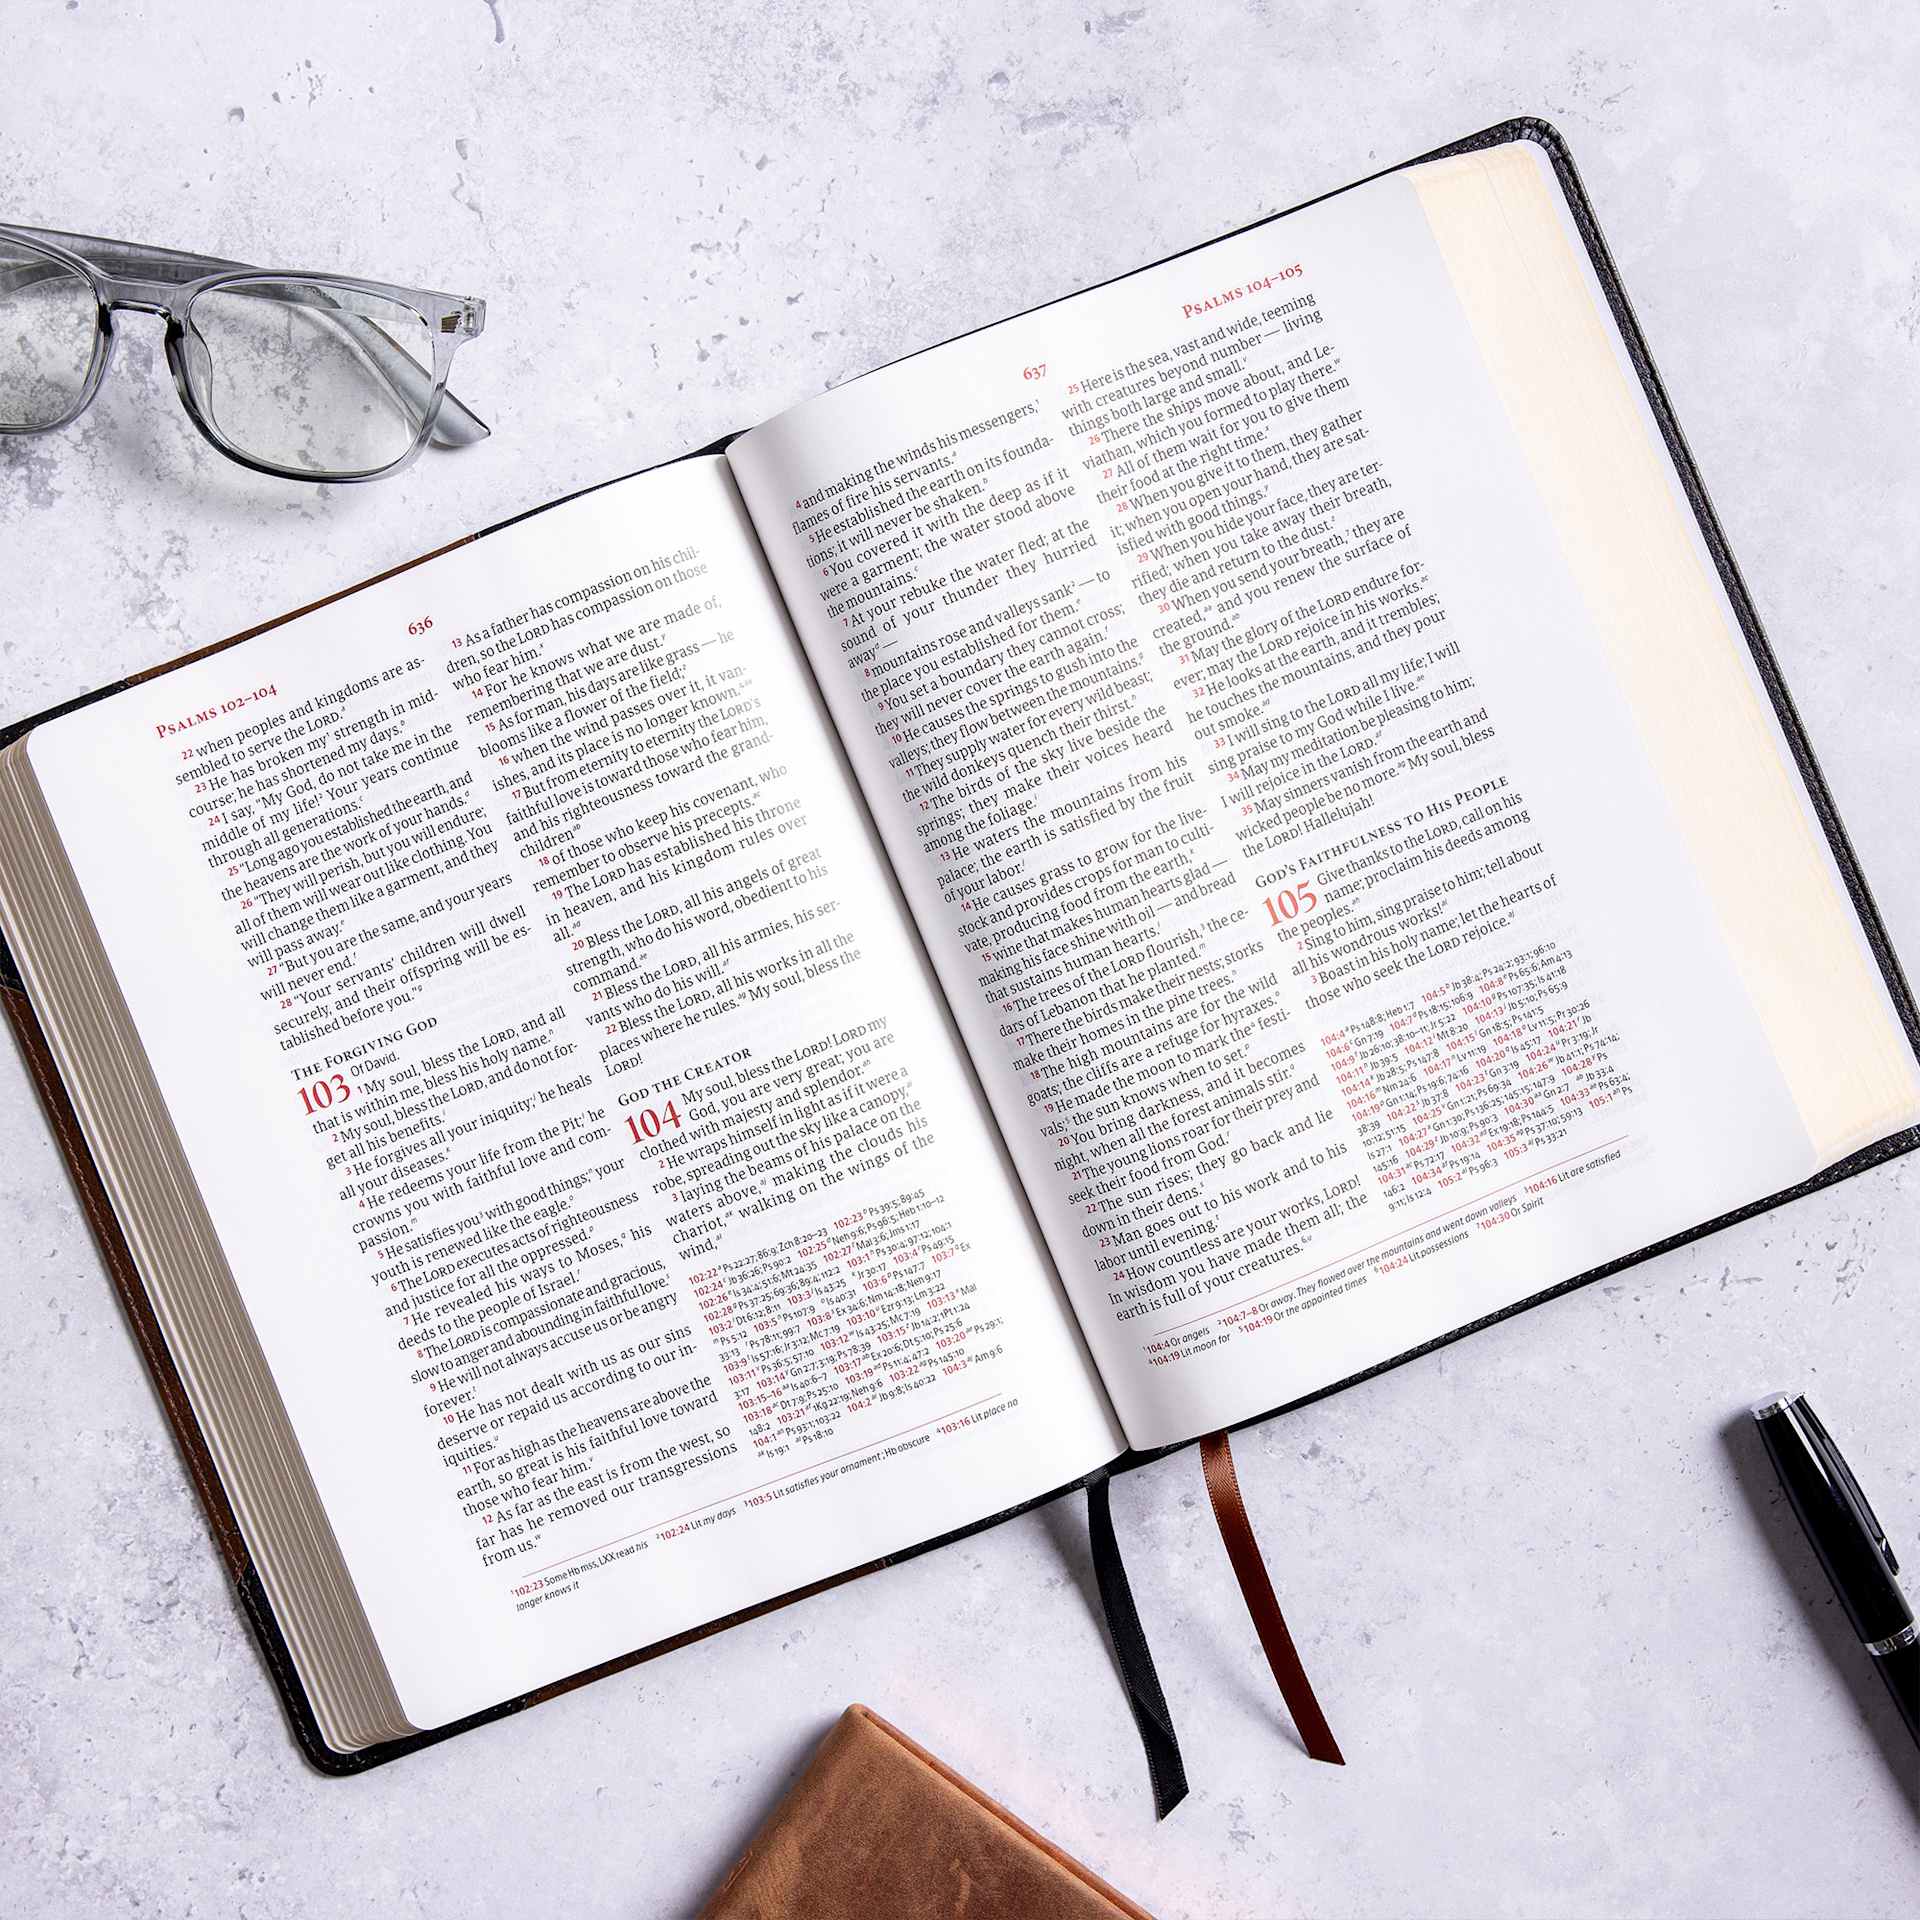 PSALMS 102–104
636
22 when peoples and kingdoms are as-
sembled to serve the LORD.
23 He has broken my¹ strength in mid-
course; he has shortened my days.
24 I say, "My God, do not take me in the
middle of my life!² Your years continue
through all generations.
25 "Long ago you established the earth, and
the heavens are the work of your hands.
26 "They will perish, but you will endure;
all of them will wear out like clothing. You
will change them like a garment, and they
will pass away.
27 "But you are the same, and your years
will never end.
28 "Your servants' children will dwell
securely, and their offspring will be es-
tablished before you."
THE FORGIVING GOD
Of David.
103 1 My soul, bless the LORD, and all
that is within me, bless his holy name.
2 My soul, bless the LORD, and do not for-
get all his benefits.
3 He forgives all your iniquity; he heals
all your diseases.
4 He redeems your life from the Pit; he
crowns you with faithful love and com-
passion.
5 He satisfies you³ with good things; your
youth is renewed like the eagle.
6 The LORD executes acts of righteousness
and justice for all the oppressed.
7 He revealed his ways to Moses, his
deeds to the people of Israel.
8 The LORD is compassionate and gracious,
slow to anger and abounding in faithful love.
9 He will not always accuse us or be angry
forever.
10 He has not dealt with us as our sins
deserve or repaid us according to our in-
iquities.
11 For as high as the heavens are above the
earth, so great is his faithful love toward
those who fear him.
12 As far as the east is from the west, so
far has he removed our transgressions
from us.
13 As a father has compassion on his chil-
dren, so the LORD has compassion on those
who fear him.
14 For he knows what we are made of,
remembering that we are dust.
15 As for man, his days are like grass — he
blooms like a flower of the field;
16 when the wind passes over it, it van-
ishes, and its place is no longer known.⁴
17 But from eternity to eternity the LORD's
faithful love is toward those who fear him,
and his righteousness toward the grand-
children
18 of those who keep his covenant, who
remember to observe his precepts.
19 The LORD has established his throne
in heaven, and his kingdom rules over
all.
20 Bless the LORD, all his angels of great
strength, who do his word, obedient to his
command.
21 Bless the LORD, all his armies, his ser-
vants who do his will.
22 Bless the LORD, all his works in all the
places where he rules. My soul, bless the
LORD!
GOD THE CREATOR
104 My soul, bless the LORD! LORD my
God, you are very great; you are
clothed with majesty and splendor.
2 He wraps himself in light as if it were a
robe, spreading out the sky like a canopy,
3 laying the beams of his palace on the
waters above, making the clouds his
chariot, walking on the wings of the
wind,
¹102:23 Some Hb mss, LXX read his ²102:24 Lit my days ³103:5 Lit satisfies your ornament; Hb obscure ⁴103:16 Lit place no
longer knows it
637
PSALMS 104–105
4 and making the winds his messengers,¹
flames of fire his servants.
5 He established the earth on its founda-
tions; it will never be shaken.
6 You covered it with the deep as if it
were a garment; the water stood above
the mountains.
7 At your rebuke the water fled; at the
sound of your thunder they hurried
away —
8 mountains rose and valleys sank² — to
the place you established for them.
9 You set a boundary they cannot cross;
they will never cover the earth again.
10 He causes the springs to gush into the
valleys; they flow between the mountains.
11 They supply water for every wild beast;
the wild donkeys quench their thirst.
12 The birds of the sky live beside the
springs; they make their voices heard
among the foliage.
13 He waters the mountains from his
palace; the earth is satisfied by the fruit
of your labor.
14 He causes grass to grow for the live-
stock and provides crops for man to culti-
vate, producing food from the earth,
15 wine that makes human hearts glad —
making his face shine with oil — and bread
that sustains human hearts.
16 The trees of the LORD flourish,³ the ce-
dars of Lebanon that he planted.
17 There the birds make their nests; storks
make their homes in the pine trees.
18 The high mountains are for the wild
goats; the cliffs are a refuge for hyraxes.
19 He made the moon to mark the⁴ festi-
vals;⁵ the sun knows when to set.
20 You bring darkness, and it becomes
night, when all the forest animals stir.
21 The young lions roar for their prey and
seek their food from God.
22 The sun rises; they go back and lie
down in their dens.
23 Man goes out to his work and to his
labor until evening.
24 How countless are your works, LORD!
In wisdom you have made them all; the
earth is full of your creatures.⁶
25 Here is the sea, vast and wide, teeming
with creatures beyond number — living
things both large and small.
26 There the ships move about, and Le-
viathan, which you formed to play there.
27 All of them wait for you to give them
their food at the right time.
28 When you give it to them, they gather
it; when you open your hand, they are sat-
isfied with good things.
29 When you hide your face, they are ter-
rified; when you take away their breath,
they die and return to the dust.
30 When you send your breath,⁷ they are
created, and you renew the surface of
the ground.
31 May the glory of the LORD endure for-
ever; may the LORD rejoice in his works.
32 He looks at the earth, and it trembles;
he touches the mountains, and they pour
out smoke.
33 I will sing to the LORD all my life; I will
sing praise to my God while I live.
34 May my meditation be pleasing to him;
I will rejoice in the LORD.
35 May sinners vanish from the earth and
wicked people be no more. My soul, bless
the LORD! Hallelujah!
GOD'S FAITHFULNESS TO HIS PEOPLE
105 Give thanks to the LORD, call on his
name; proclaim his deeds among
the peoples.
2 Sing to him, sing praise to him; tell about
all his wondrous works!
3 Boast in his holy name; let the hearts of
those who seek the LORD rejoice.
¹104:4 Or angels ²104:7–8 Or away. They flowed over the mountains and went down valleys ³104:16 Lit are satisfied
⁴104:19 Lit moon for ⁵104:19 Or the appointed times ⁶104:24 Lit possessions ⁷104:30 Or Spirit